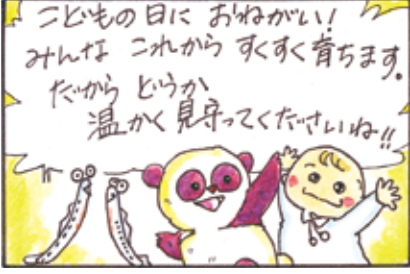 こどもの日に おねがい!
みんな これから すくすく育ちます。
だから どうか
温かく見守ってくださいね!!